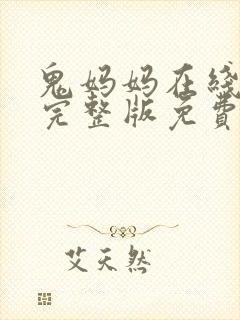 鬼妈妈在线
完整版免费
艾天然